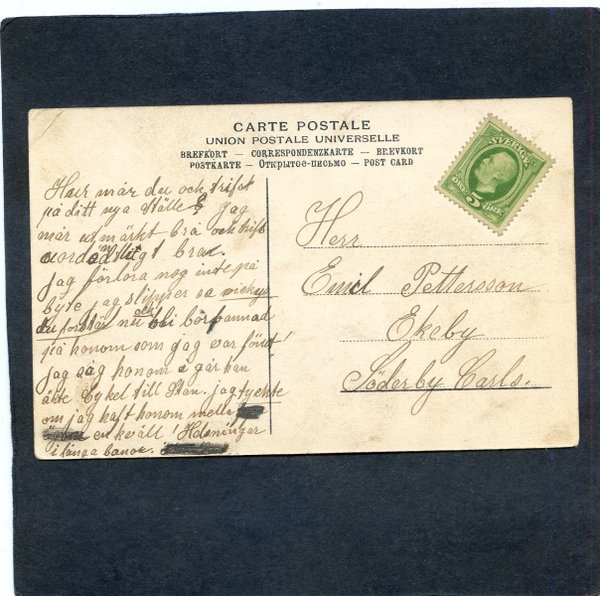 CARTE POSTALE
UNION POSTALE UNIVERSELLE
BREFKORT — CORRESPONDENZKARTE — BREVKORT
POSTKARTE — Открытое-письмо — POST CARD
SVERIGE
5 ÖRE ÖRE
Hur mår du och trifst
på ditt nya ställe? Jag
mår utmärkt brå och trifs
bra.
jag förlora nog inte på
byte jag slipper så mickey
du förstår nu ock bli
på honom som jag var förut!
jag såg honom i går han
åkte Cykel till Stan. jag tyckte
om jag haft honom mella
en kväll! Helsningar
i långa banor.
Herr
Emil Pettersson
Ekeby
Söderby Carls.